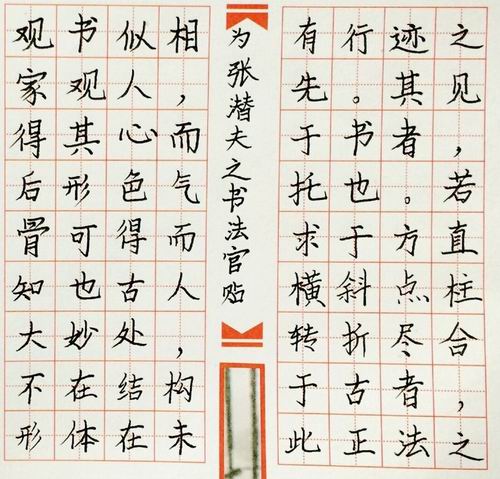 观书似相
家观人，
得其心而
后形色气
骨可得而
知也古人
大妙处，
不在结构
形体在未
为张潜夫之书法官贴
有行迹之
先。其见
于书者，
托也。若
求于方直
横斜点柱
转折尽合
于古者，
此正法之